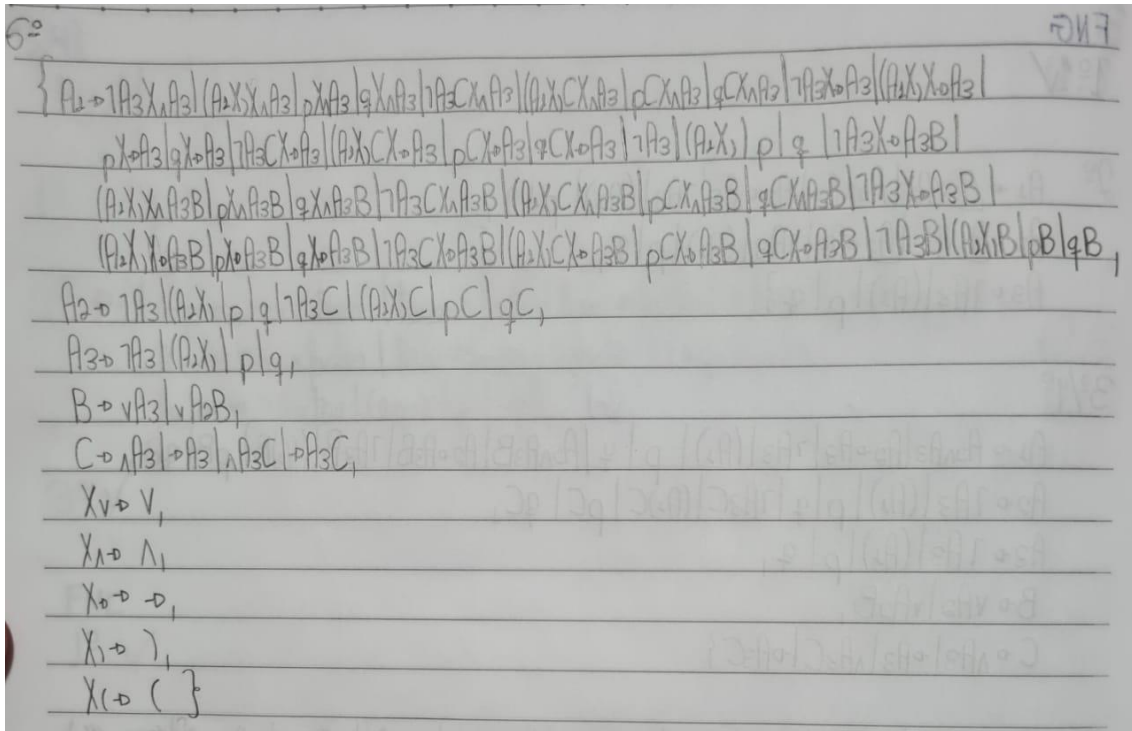 6º FNG
{ A₂→¬A₃X∧A₃|(A₂X)X∧A₃|pX∧A₃|qX∧A₃|¬A₃CX∧A₃|(A₂X)CX∧A₃|pCX∧A₃|qCX∧A₃|¬A₃X→A₃|(A₂X)X→A₃|
pX→A₃|qX→A₃|¬A₃CX→A₃|(A₂X)CX→A₃|pCX→A₃|qCX→A₃|¬A₃|(A₂X)|p|q|¬A₃X→A₃B|
(A₂X)X∧A₃B|pX∧A₃B|qX∧A₃B|¬A₃CX∧A₃B|(A₂X)CX∧A₃B|pCX∧A₃B|qCX∧A₃B|¬A₃X→A₃B|
(A₂X)X→A₃B|pX→A₃B|qX→A₃B|¬A₃CX→A₃B|(A₂X)CX→A₃B|pCX→A₃B|qCX→A₃B|¬A₃B|(A₂X)B|pB|qB,
A₂→¬A₃|(A₂X)|p|q|¬A₃C|(A₂X)C|pC|qC,
A₃→¬A₃|(A₂X)|p|q,
B→∨A₃|∨A₂B,
C→∧A₃|→A₃|∧A₃C|→A₃C,
X∨→∨,
X∧→∧,
X→→→,
X)→),
X(→( }